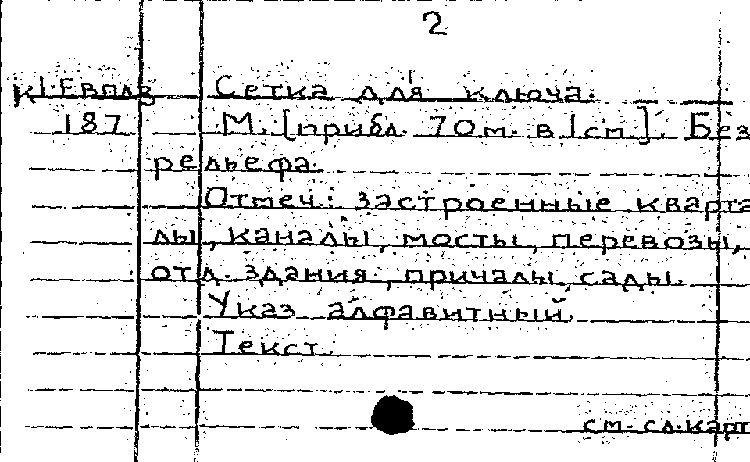 2
К1-Евпаз Сетка для ключа.
187 М. [прибл. 70м. в 1см.]. Без
рельефа.
Отмеч: застроенные кварта
лы, каналы, мосты, перевозы,
отд. здания, причалы, сады.
Указ алфавитный.
Текст.
см. сл. карт